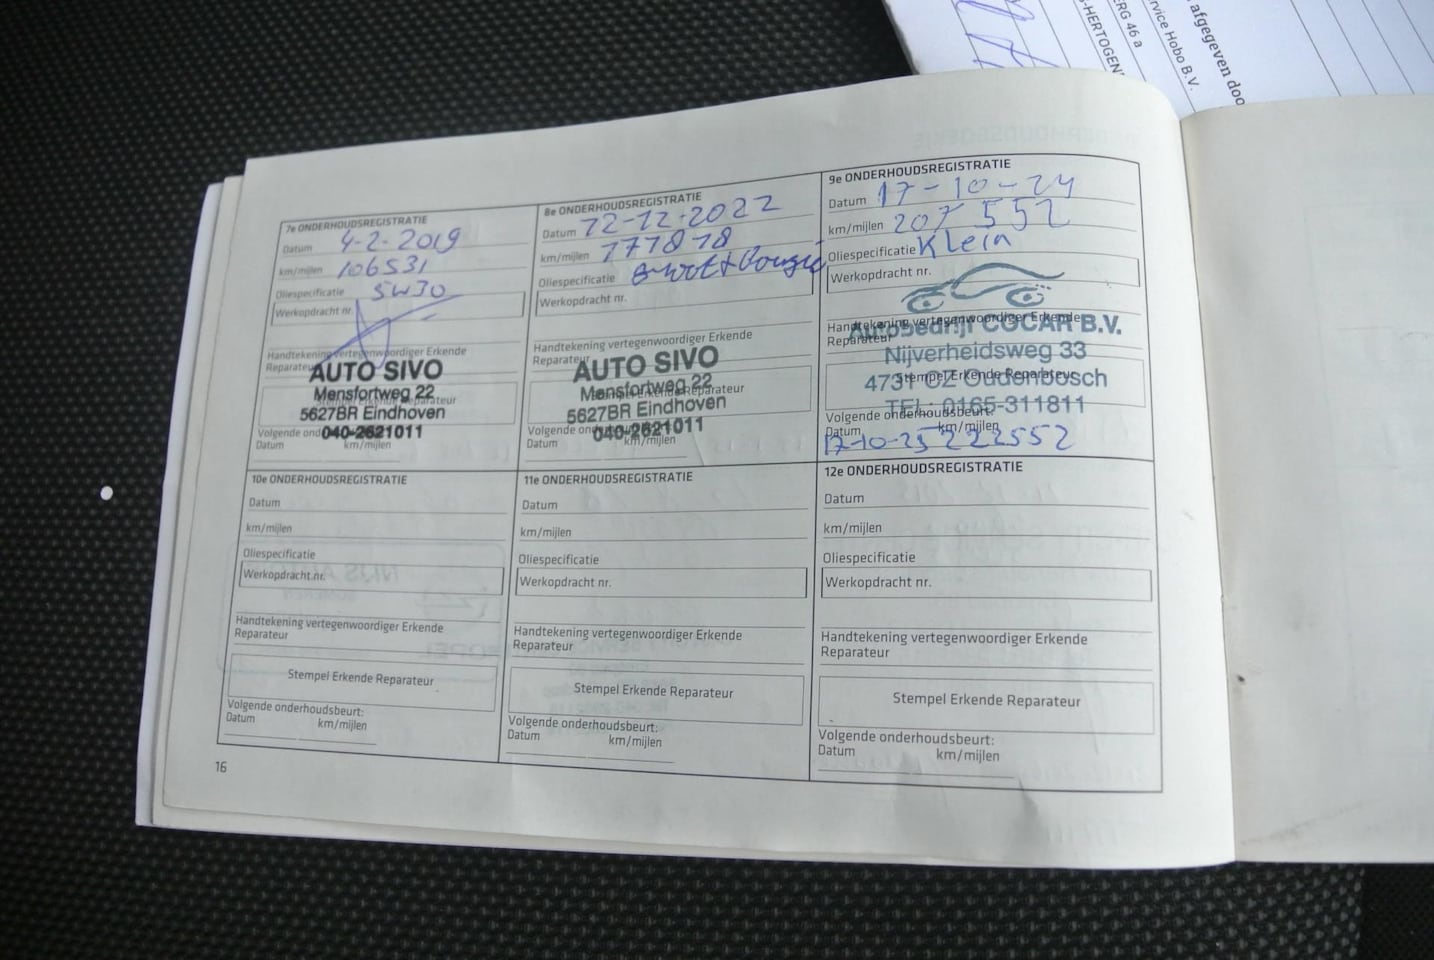 afgegeven doo
rvice Hobo B.V.
ERG 46 a
S-HERTOGEN
7e ONDERHOUDSREGISTRATIE
Datum 4-2-2019
km/mijlen 106531
Oliespecificatie 5W30
Werkopdracht nr.
Handtekening vertegenwoordiger Erkende
Reparateur
AUTO SIVO
Mensfortweg 22
Stempel Erkende Reparateur
5627BR Eindhoven
040-2621011
Volgende
Datum km/mijlen
8e ONDERHOUDSREGISTRATIE
Datum 12-12-2022
km/mijlen 177878
Oliespecificatie
Werkopdracht nr.
Handtekening vertegenwoordiger Erkende
Reparateur
AUTO SIVO
Mensfortweg 22
Stempel Erkende Reparateur
5627BR Eindhoven
040-2621011
Volgende
Datum km/mijlen
9e ONDERHOUDSREGISTRATIE
Datum 17-10-24
km/mijlen 207552
Oliespecificatie Klein
Werkopdracht nr.
Handtekening vertegenwoordiger Erkende
Reparateur
Autobedrijf COCAR B.V.
Nijverheidsweg 33
Stempel Erkende Reparateur
4731 CZ Oudenbosch
TEL: 0165-311811
Volgende onderhoudsbeurt:
Datum km/mijlen
17-10-25 222552
10e ONDERHOUDSREGISTRATIE
Datum
km/mijlen
Oliespecificatie
Werkopdracht nr.
Handtekening vertegenwoordiger Erkende
Reparateur
Stempel Erkende Reparateur
Volgende onderhoudsbeurt:
Datum km/mijlen
11e ONDERHOUDSREGISTRATIE
Datum
km/mijlen
Oliespecificatie
Werkopdracht nr.
Handtekening vertegenwoordiger Erkende
Reparateur
Stempel Erkende Reparateur
Volgende onderhoudsbeurt:
Datum km/mijlen
12e ONDERHOUDSREGISTRATIE
Datum
km/mijlen
Oliespecificatie
Werkopdracht nr.
Handtekening vertegenwoordiger Erkende
Reparateur
Stempel Erkende Reparateur
Volgende onderhoudsbeurt:
Datum km/mijlen
16